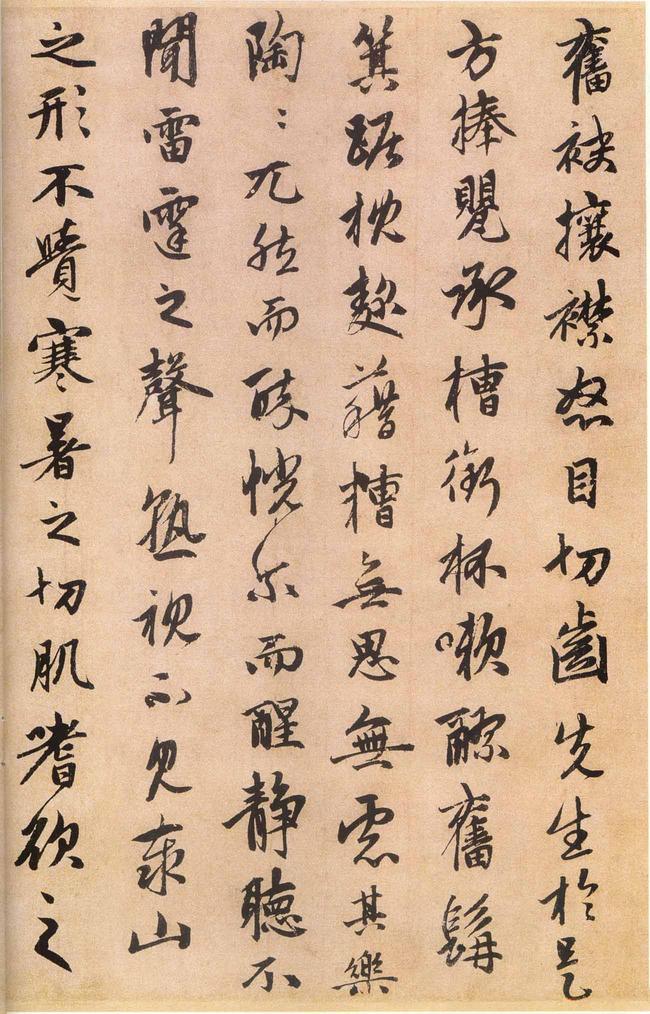 奮袂攘襟怒目切齒先生於是
方捧甖承槽銜杯嗽醪奮髯
箕踞枕麴藉糟無思無慮其樂
陶〻兀然而醉恍尔而醒静聽不
聞雷霆之聲熟視不見泰山
之形不覺寒暑之切肌嗜欲之